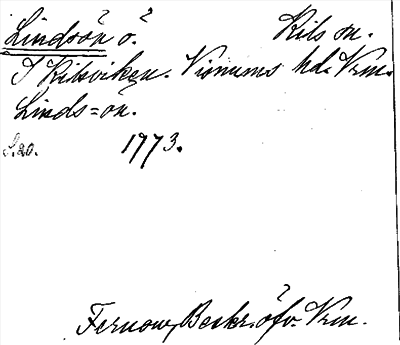 Lindsön ö. Kils sn.
I Kilsviken. Visnums hd. Vrm.
Linds=ön.
S.20. 1773.
Fernow, Beskr. öfv. Vrm.